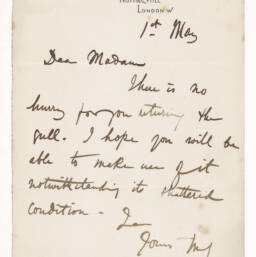 Notting Hill
London W
1st May
Dear Madam
There is no
hurry for you returning the
gull. I hope you will be
able to make use of it
notwithstanding its shattered
condition -
Yours